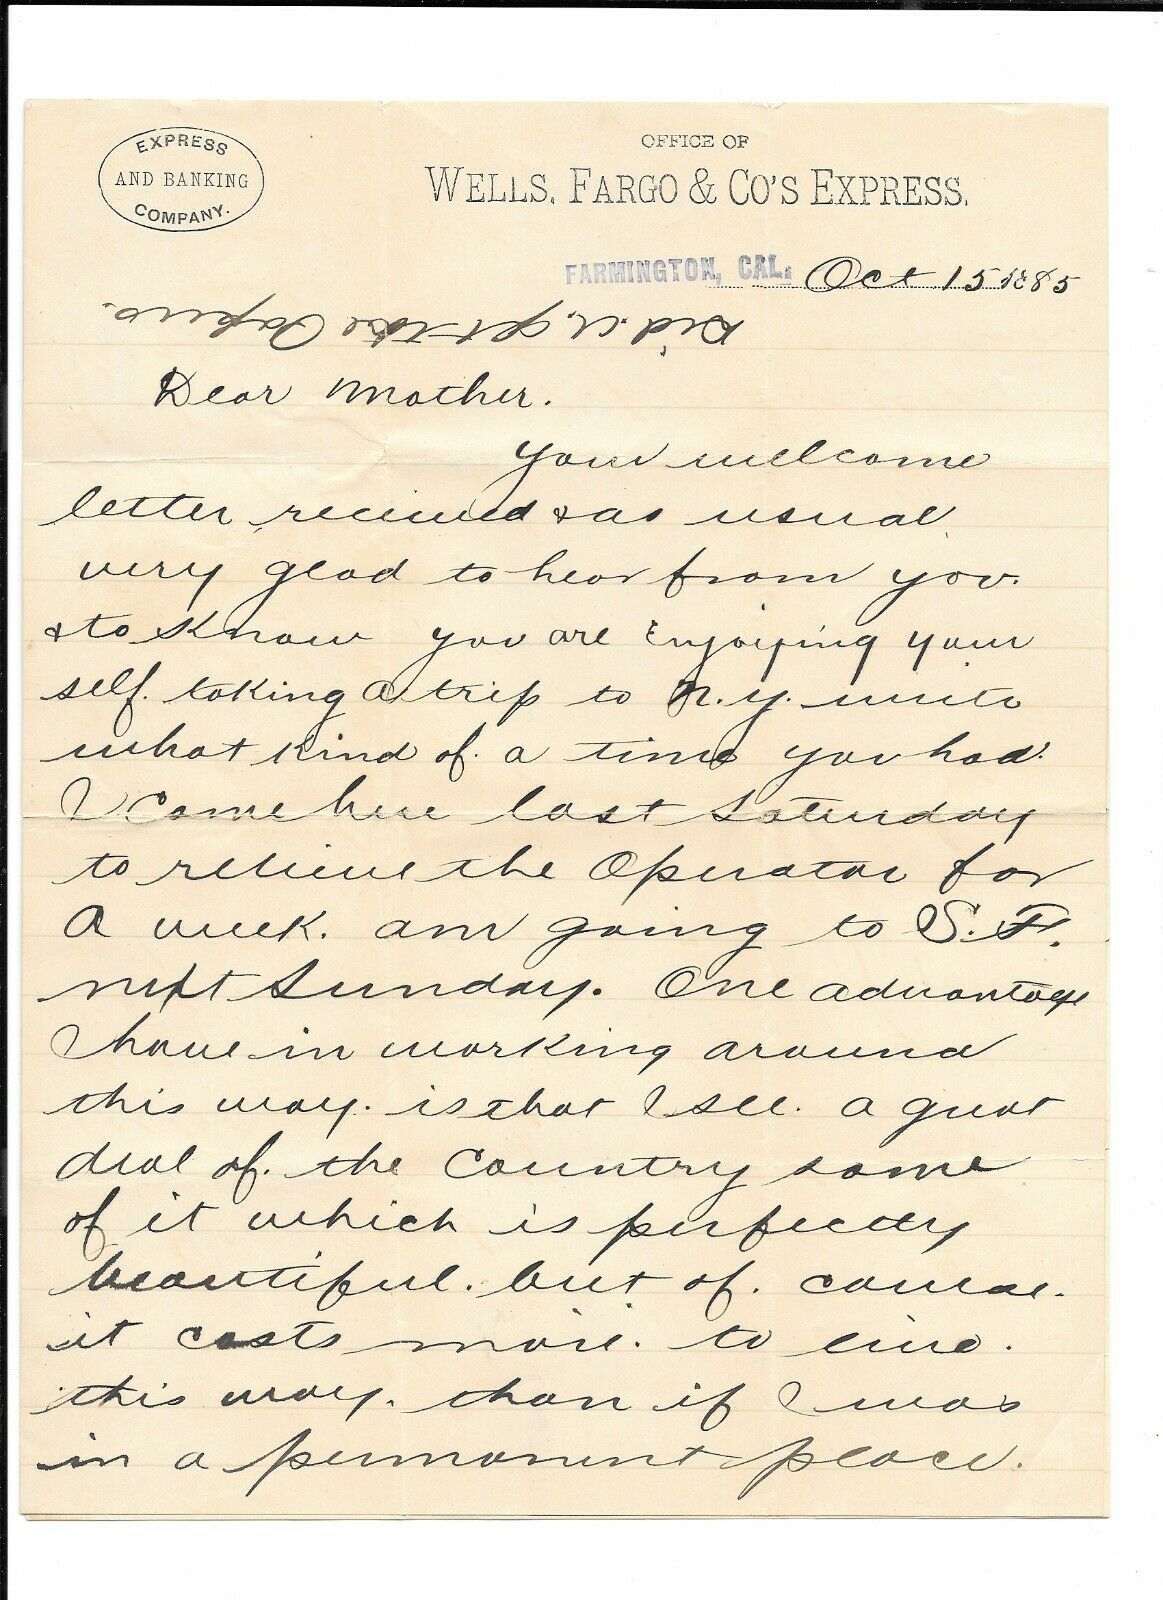 EXPRESS
AND BANKING
COMPANY.
OFFICE OF
WELLS, FARGO & CO'S EXPRESS.
FARMINGTON, CAL. Oct 15 1885
Did U. get the Papers.
Dear Mother.
Your welcome
letter recieved & as usual
very glad to hear from you.
& to Know you are Enjoying your
self. taking a trip to N.Y. write
what Kind of. a time you had.
I Came here last Saturday
to relieve the Operator for
a week. am going to S.F.
next Sunday. One advantage
I have in working around
this way. is that I see. a great
deal of. the Country some
of it which is perfectly
beautiful. but of. course.
it costs more. to live.
this way. than if I was
in a permanent place.